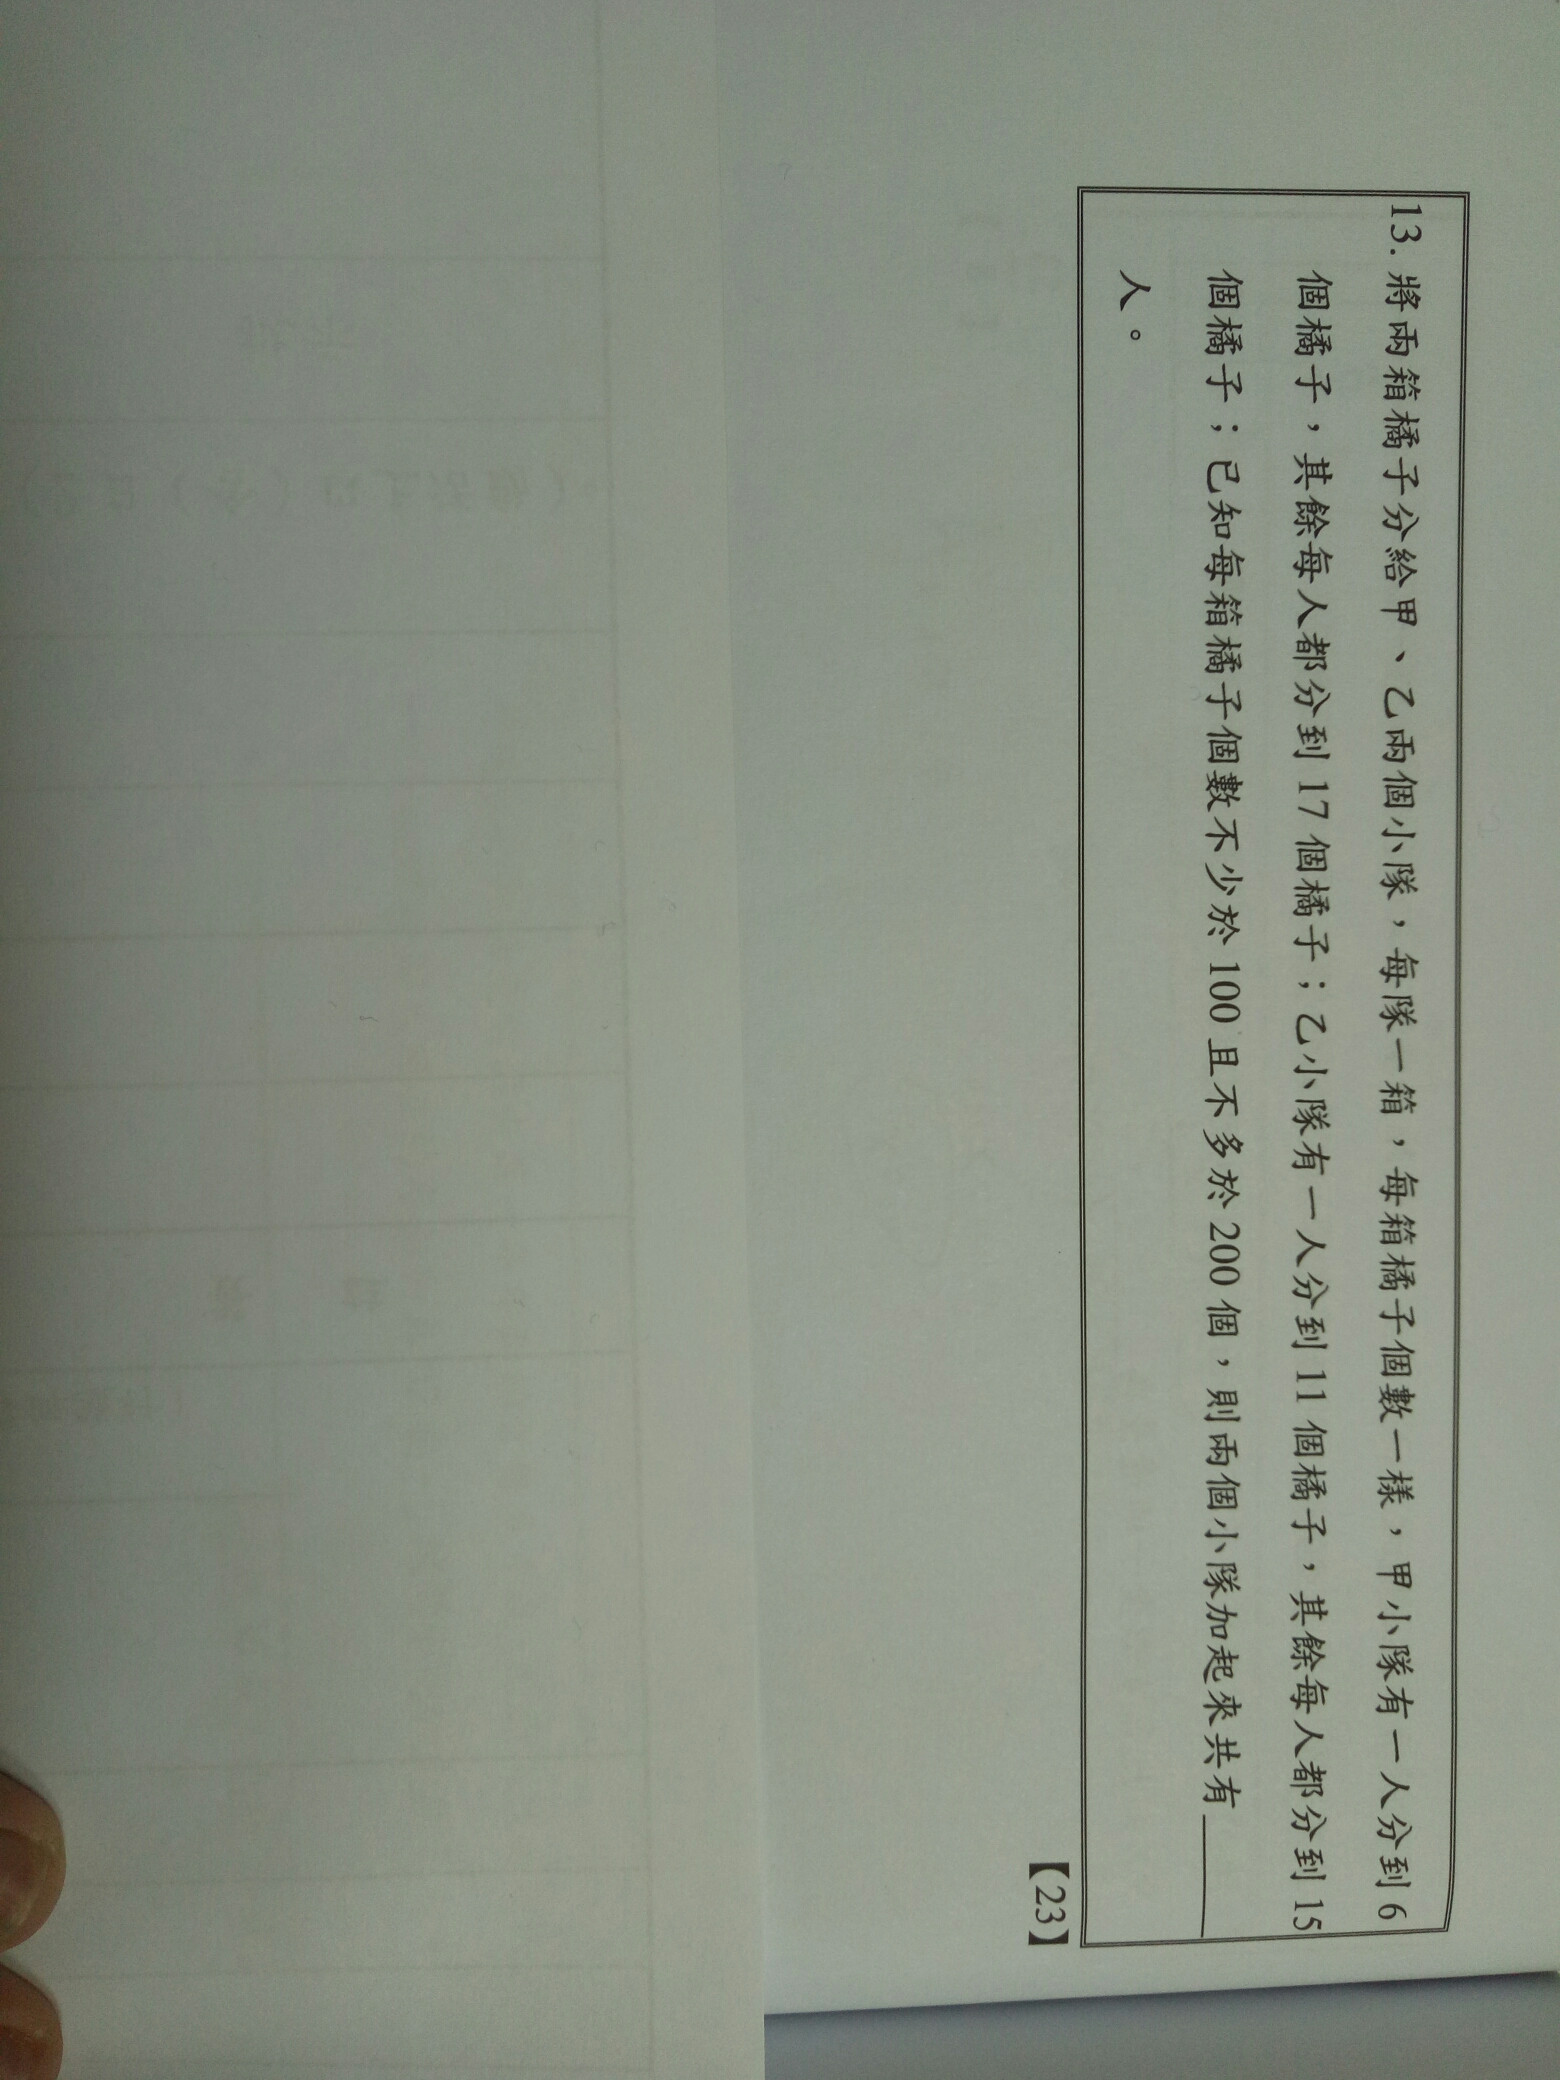 13. 將兩箱橘子分給甲、乙兩個小隊，每隊一箱，每箱橘子個數一樣，甲小隊有一人分到 6
個橘子，其餘每人都分到 17 個橘子；乙小隊有一人分到 11 個橘子，其餘每人都分到 15
個橘子；已知每箱橘子個數不少於 100 且不多於 200 個，則兩個小隊加起來共有______
人。
【23】